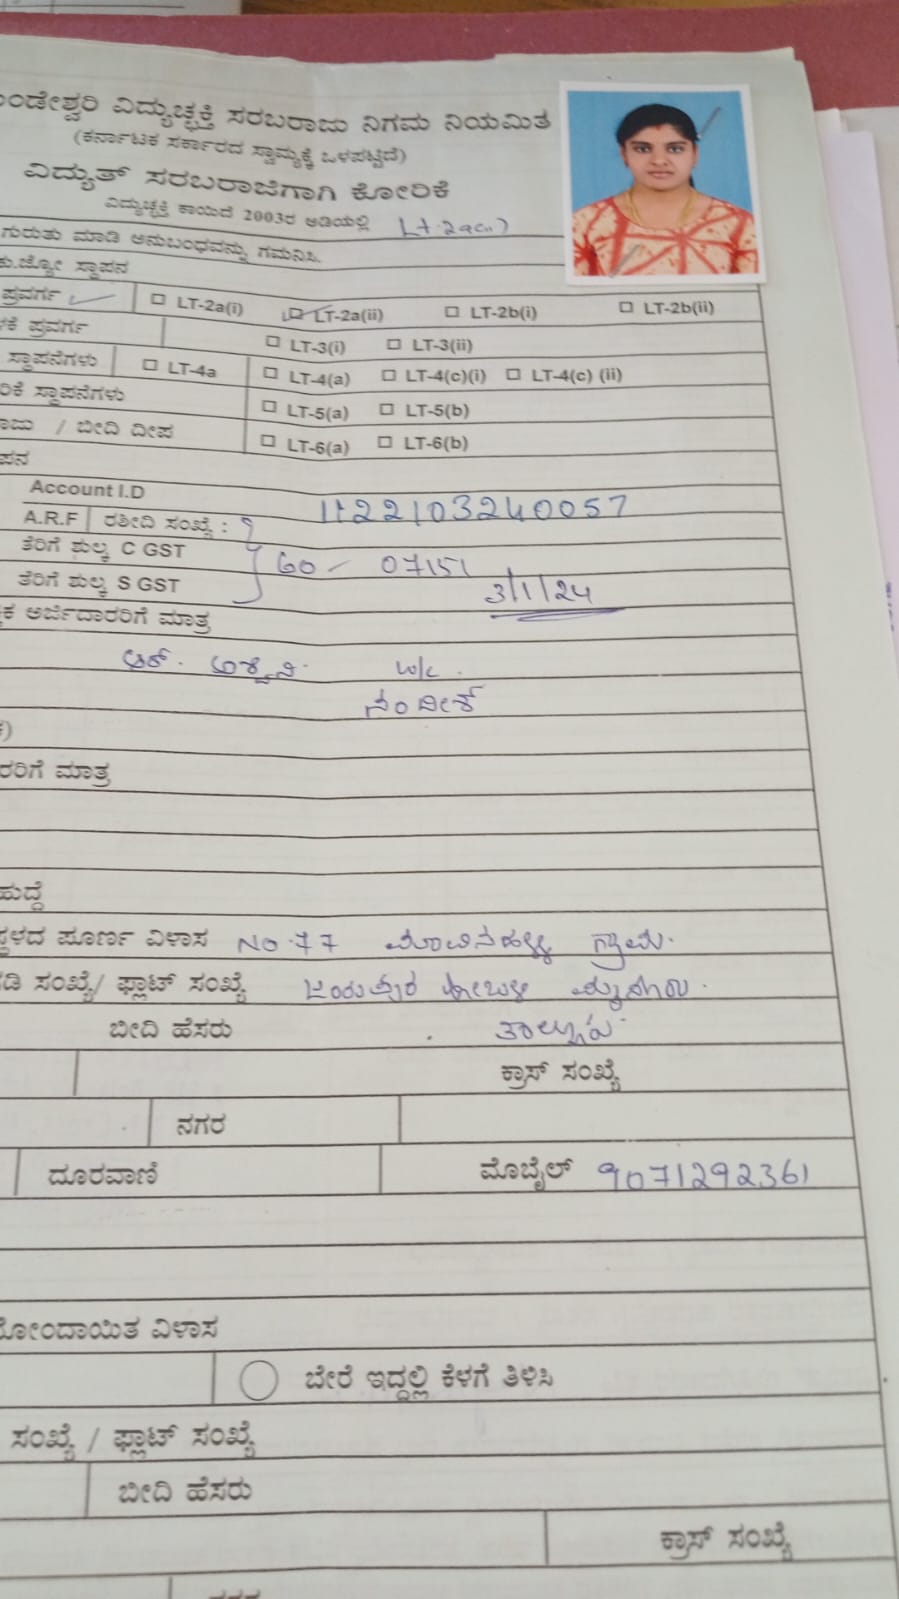 ವಿದ್ಯುಚ್ಛಕ್ತಿ ಸರಬರಾಜು ನಿಗಮ ನಿಯಮಿತ
(ಕರ್ನಾಟಕ ಸರ್ಕಾರದ ಸ್ವಾಮ್ಯಕ್ಕೆ ಒಳಪಟ್ಟಿದೆ)
ವಿದ್ಯುತ್ ಸರಬರಾಜಿಗಾಗಿ ಕೋರಿಕೆ
ವಿದ್ಯುಚ್ಛಕ್ತಿ ಕಾಯಿದೆ 2003ರ ಅಡಿಯಲ್ಲಿ
ಗುರುತು ಮಾಡಿ ಅನುಬಂಧವನ್ನು ಗಮನಿಸಿ.
ಸ್ಥಾಪನ
ಪ್ರವರ್ಗ LT-2a(i) LT-2a(ii) LT-2b(i) LT-2b(ii)
ಪ್ರವರ್ಗ LT-3(i) LT-3(ii)
ಸ್ಥಾಪನೆಗಳು LT-4a LT-4(a) LT-4(c)(i) LT-4(c) (ii)
ಸ್ಥಾಪನೆಗಳು LT-5(a) LT-5(b)
/ ಬೀದಿ ದೀಪ LT-6(a) LT-6(b)
Account I.D 1122103240057
A.R.F ರಶೀದಿ ಸಂಖ್ಯೆ :
ತೆರಿಗೆ ಶುಲ್ಕ C GST 60 - 07151
ತೆರಿಗೆ ಶುಲ್ಕ S GST 3/1/24
ಅರ್ಜಿದಾರರಿಗೆ ಮಾತ್ರ
ಆರ್. ಅಶ್ವಿನಿ.
ನಂದೀಶ್
ಮಾತ್ರ
ಹುದ್ದೆ
ಪೂರ್ಣ ವಿಳಾಸ NO.77 ಗ್ರಾಮ.
ಸಂಖ್ಯೆ/ ಫ್ಲಾಟ್ ಸಂಖ್ಯೆ ಜಯಪುರ ಹೋಬಳಿ ಮೈಸೂರು.
ಬೀದಿ ಹೆಸರು ತಾಲ್ಲೂಕು.
ಕ್ರಾಸ್ ಸಂಖ್ಯೆ
ನಗರ
ದೂರವಾಣಿ ಮೊಬೈಲ್ 9071292361
ವಿಳಾಸ
ಬೇರೆ ಇದ್ದಲ್ಲಿ ಕೆಳಗೆ ತಿಳಿಸಿ
ಸಂಖ್ಯೆ / ಫ್ಲಾಟ್ ಸಂಖ್ಯೆ
ಬೀದಿ ಹೆಸರು
ಕ್ರಾಸ್ ಸಂಖ್ಯೆ